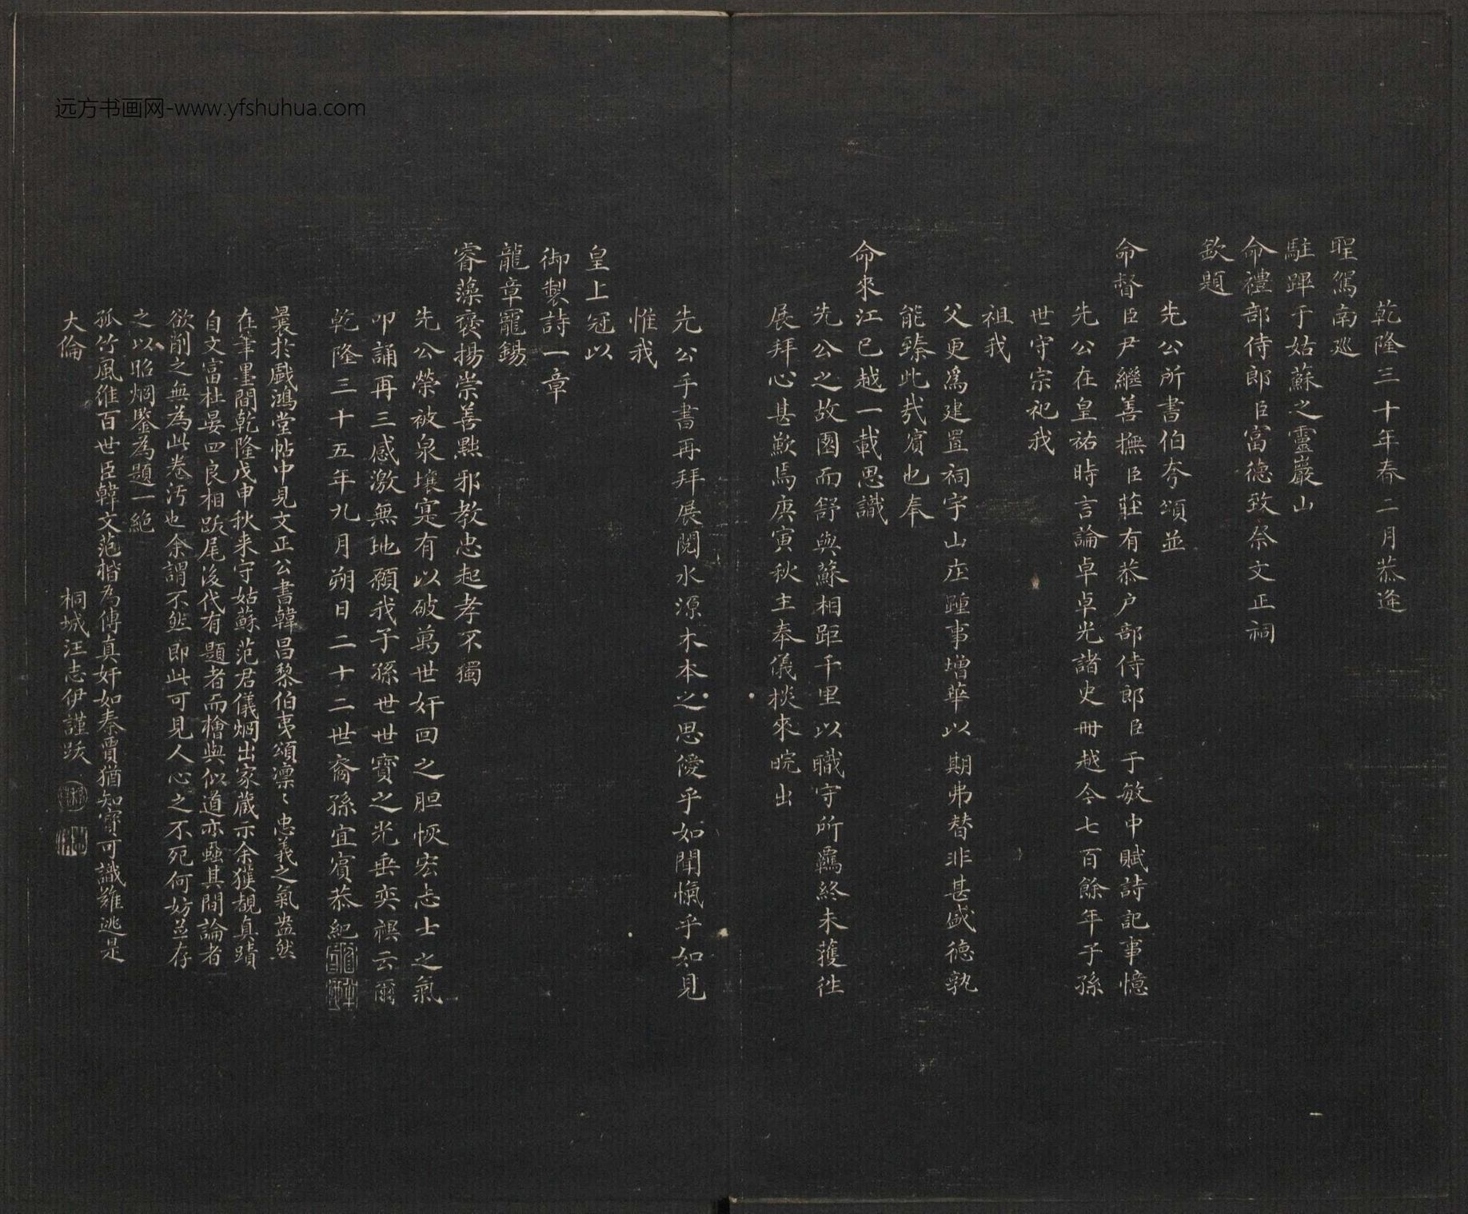 远方书画网-www.yfshuhua.com
乾隆三十年春二月恭逢
聖駕南巡
駐蹕于姑蘇之靈巖山
命禮部侍郎臣富德致祭文正祠
欽題
先公所書伯夷頌並
命督臣尹繼善撫臣莊有恭户部侍郎臣于敏中賦詩記事憶
先公在皇祐時言論卓卓光諸史冊越今七百餘年子孫
世守宗祀我
祖我
父更爲建置祠宇山庄踵事增華以期弗替非甚盛德孰
能臻此哉賔也奉
命來江已越一載思識
先公之故園而舒與蘇相距千里以職守所羈終未獲徃
展拜心甚歉焉庚寅秋主奉儀掞來皖出
先公手書再拜展閱水源木本之思僾乎如聞愾乎如見
惟我
皇上冠以
御製詩一章
龍章寵錫
睿藻褒揚崇善黜邪教忠起孝不獨
先公榮被泉壤寔有以破萬世奸回之胆恢宏志士之氣
叩誦再三感激無地願我子孫世世寶之光垂奕禩云爾
乾隆三十五年九月朔日二十二世裔孫宜賔恭紀
曩於戲鴻堂帖中見文正公書韓昌黎伯夷頌凜〻忠義之氣盎然
在筆墨間乾隆戊申秋来守姑蘇范君儀炯出家蔵示余獲覩真蹟
自文富杜晏四良相跋尾後代有題者而檜與似道亦厠其間論者
欲削之無為此卷汚也余謂不然即此可見人心之不死何妨並存
之以昭炯鉴為題一絶
孤竹風維百世臣韓文范楷為傳真奸如秦賈猶知寳可識難逃是
大倫
桐城汪志伊謹跋